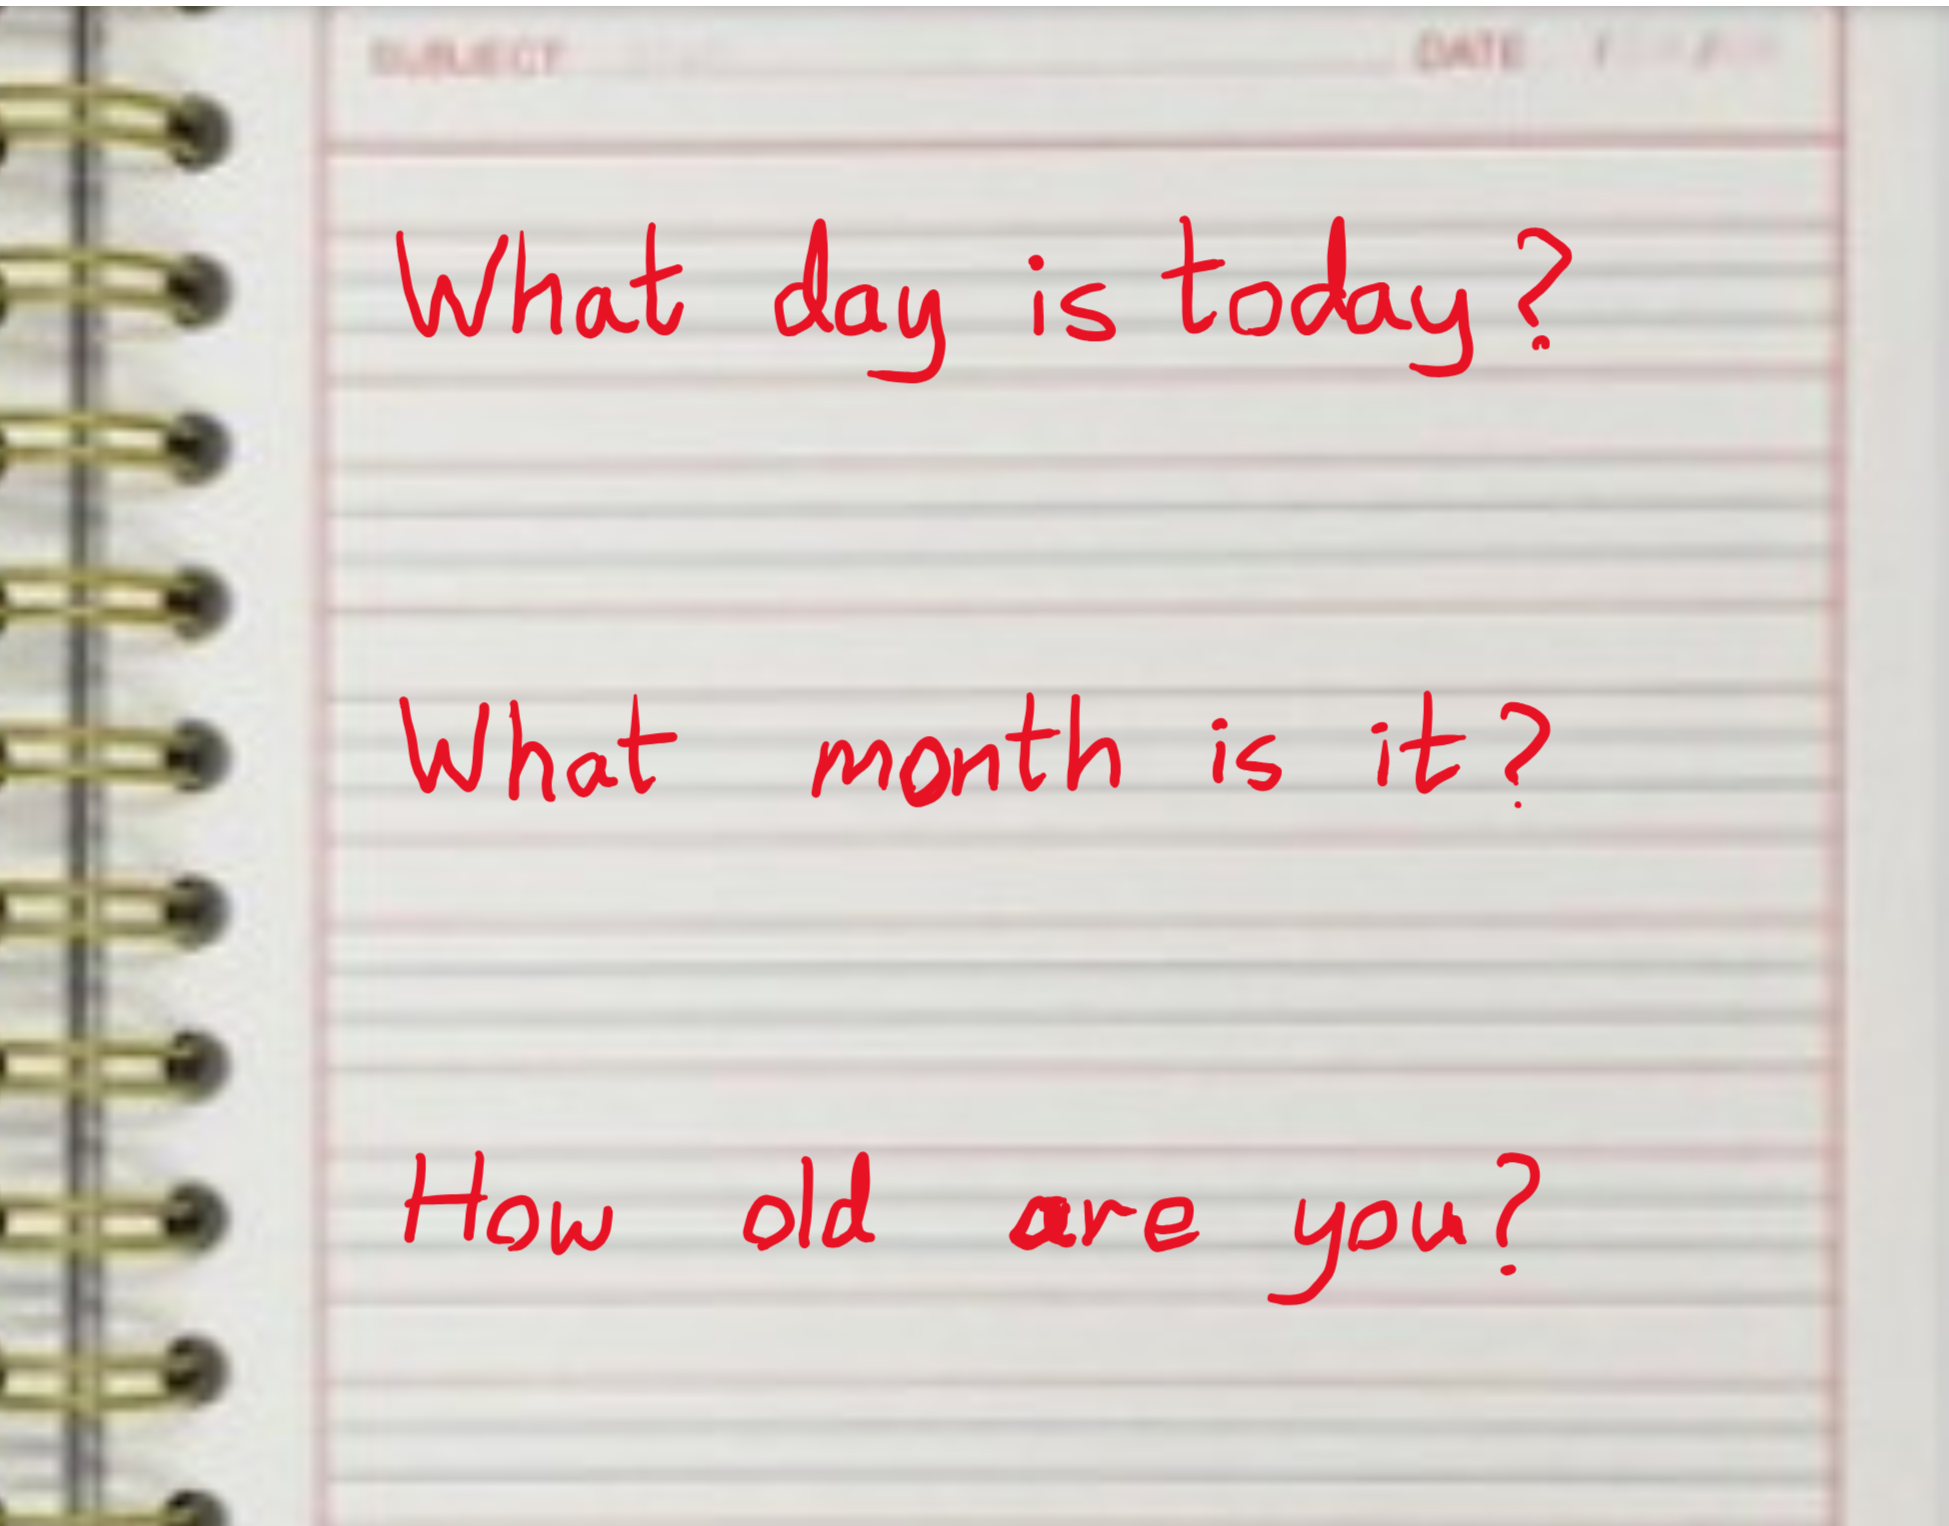 SUBJECT DATE
What day is today?
What month is it?
How old are you?